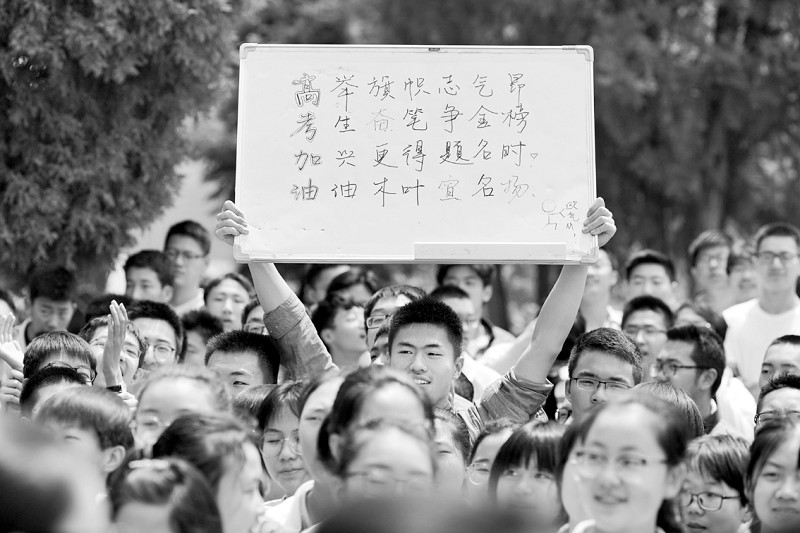 高举旗帜志气昂
考生奋笔争金榜
加兴更得题名时。
油油木叶宜名扬.